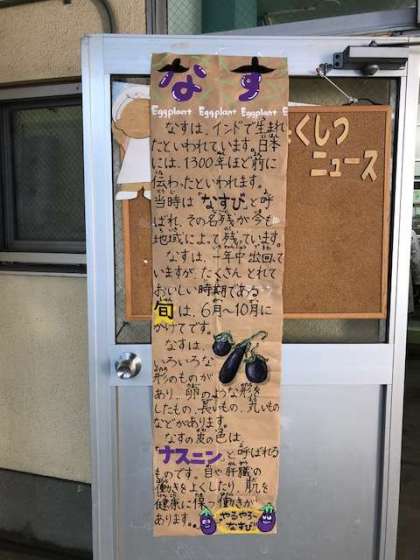 なす
Eggplant Eggplant Eggplant E
なすは、インドで生まれ
たといわれています。日本
には、1300年ほど前に
伝わったといわれます。
当時は"なすび"と呼
ばれ、その名残が今も
地域によって残っています。
なすは、一年中出回って
いますが、たくさんとれて
おいしい時期である
旬は、6月〜10月に
かけてです。
なすは、
いろいろな
形のものが
あり、卵のような形を
したもの、長いもの、丸いもの
などがあります。
なすの皮の色は、
"ナスニン"と呼ばれる
ものです。目や肝臓の
働きをよくしたり、肌を
健康に保つ働きが
あります。
やるやろ〜
なすび
くしつ
ニュース